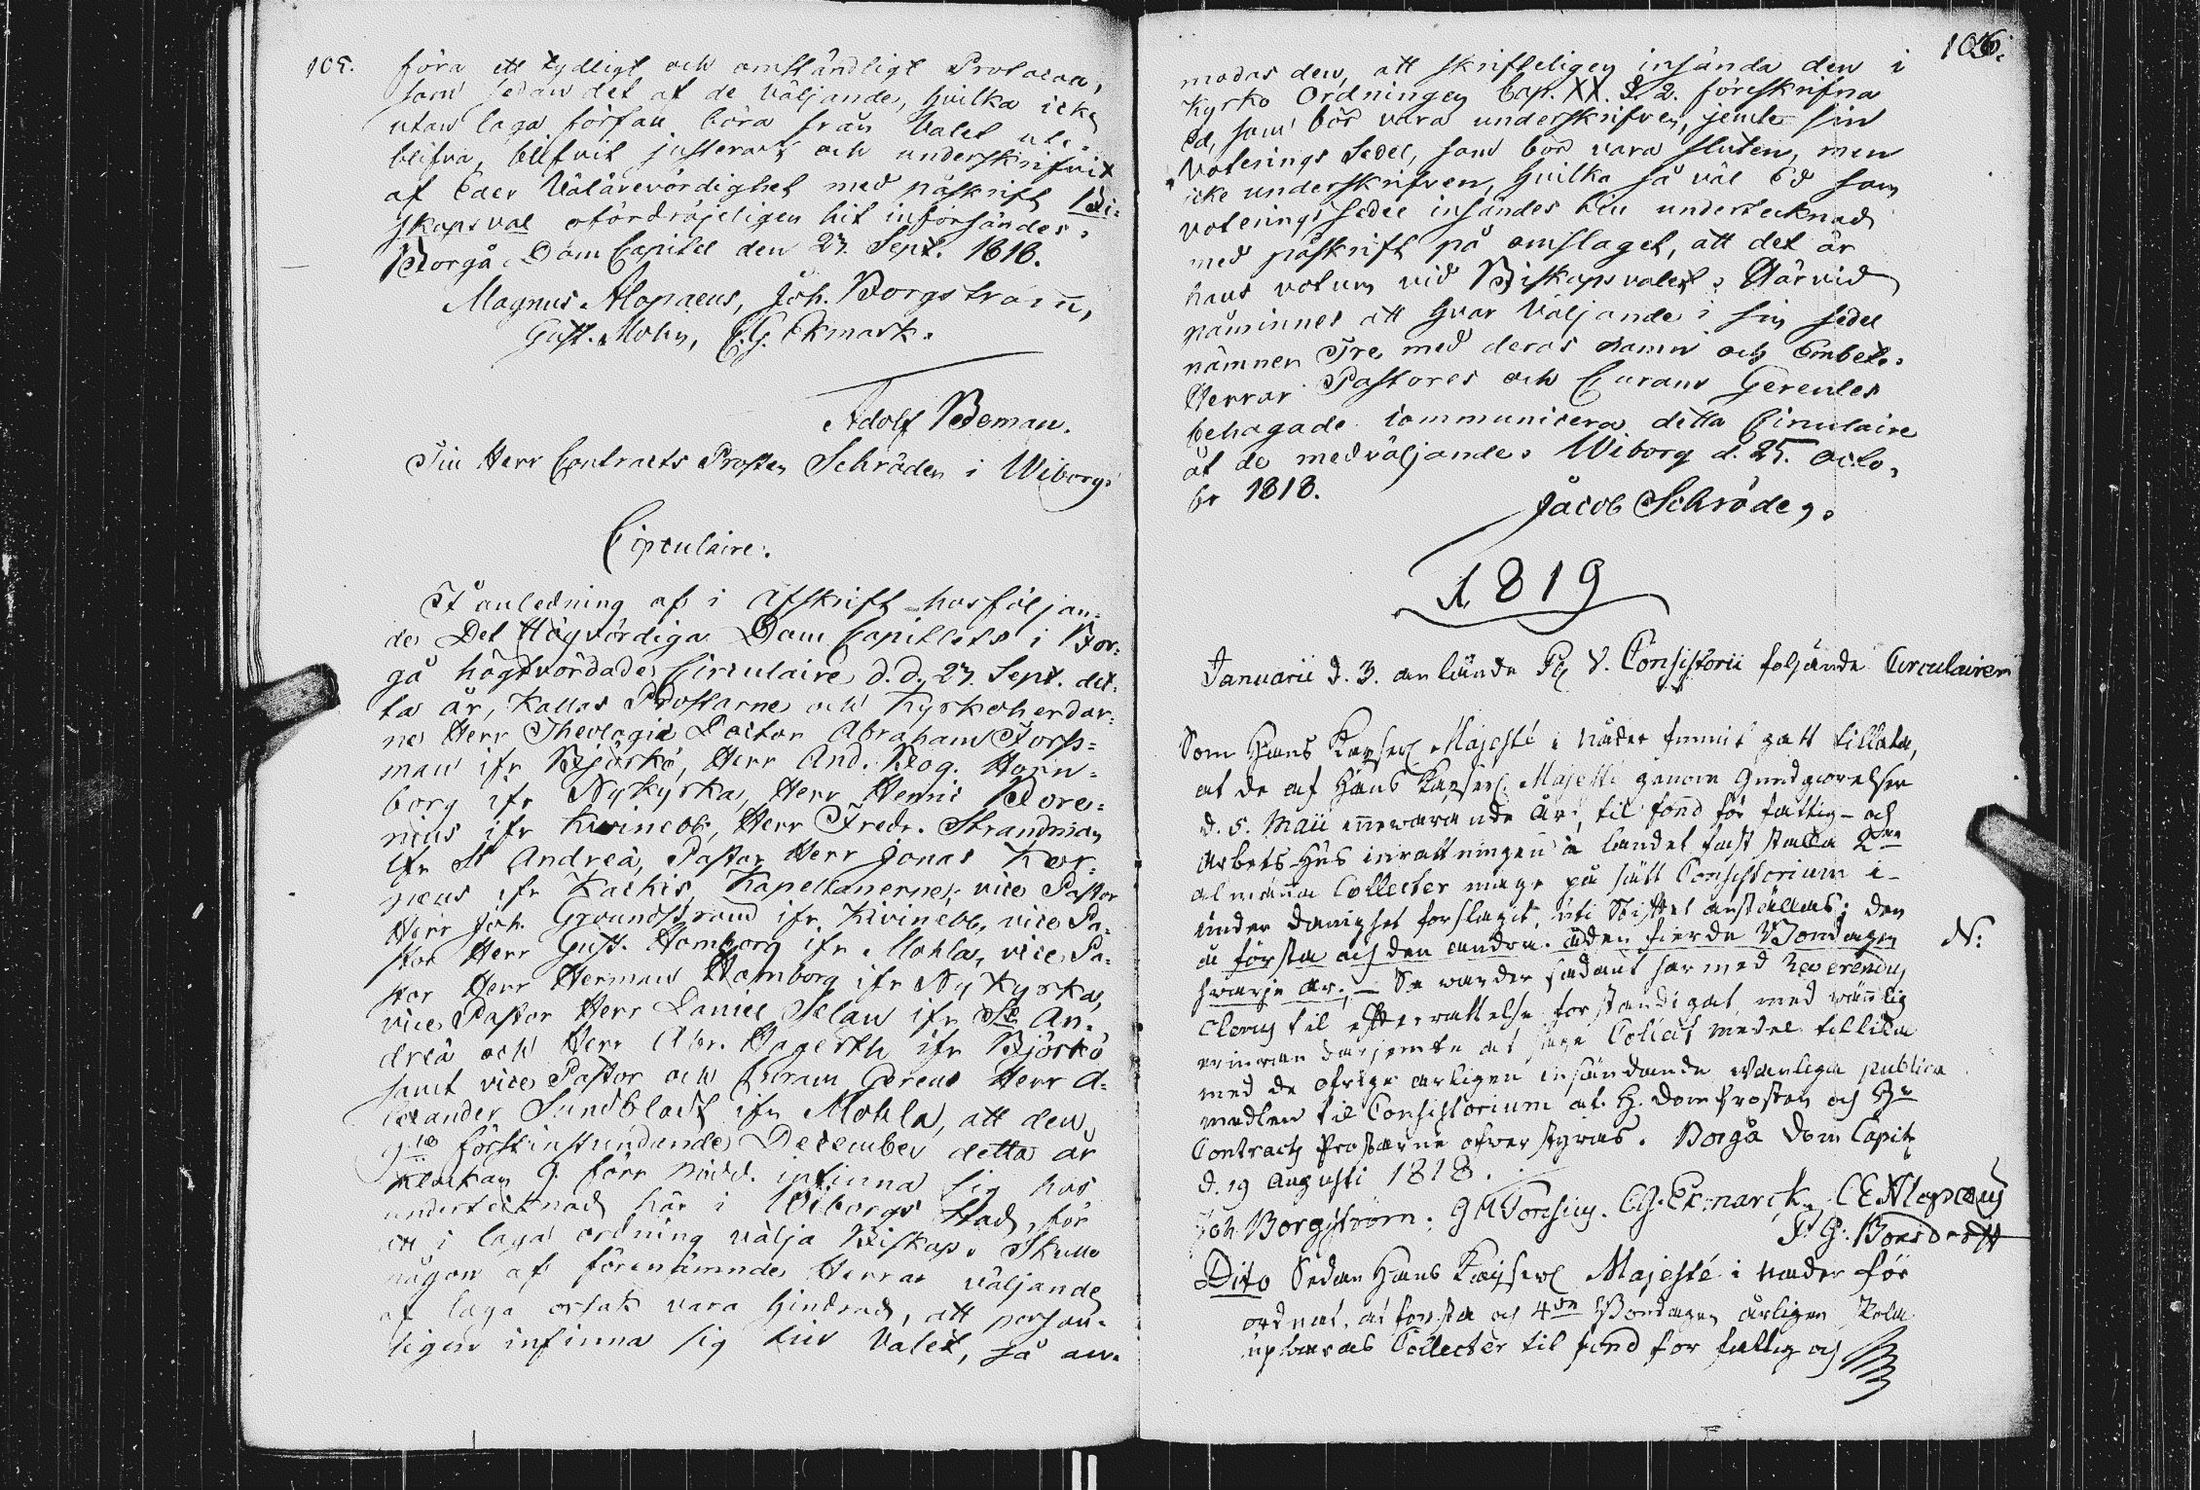 105.
föra ett tydligt och omständligt Protocoll,
som sedan det af de Väljande, hvilka icke
utan laga förfall böra från Valet ute-
blifva, blifvit justeradt och underskrifvit
af Eder Välärevördighet med påskrift Bi-
skopsval ofördröjeligen hit införsändes.
Borgå Dom Capitel den 23. Sept. 1818.
Magnus Alopaeus, Joh. Borgström,
Gust. Molin, C. G. Ekmark.
Adolf Beman.
Till Herr Contracts Prosten Schröder i Wiborg.
Circulaire.
I anledning af i Afskrift hosföljan-
de Det Högvördiga Dom Capitlets i Bor-
gå högtvördade Circulaire d. d. 23. Sept. det-
ta år, kallas Prostarne och Kyrkoherdar-
ne Herr Theologiæ Doctor Abraham Forss-
man ifr Björkö, Herr And. Rog. Horn-
borg ifr Nykyrka, Herr Henric Bore-
nius ifr Kivinebb, Herr Fredr. Strandman
ifr St Andreä, Pastor Herr Jonas
ifr Kakkis, Kapellanerne, vice Pastor
Herr Joh. Grundstroud ifr Kivinebb, vice Pa-
stor Herr Gust. Homborg ifr Mohla, vice Pa-
stor Herr Herman Homborg ifr Ny Kyrka,
vice Pastor Herr Daniel Selau ifr St An-
dreä och Herr Abr. Hagerth ifr Björkö
samt vice Pastor och Curam Gerens Herr A-
lexander Sundbladt ifr Mohla, att den
förstinstundande December detta år
klockan 9 förr midd. infinna sig hos
undertecknad här i Wiborgs Stad, för
att i laga ordning välja Biskop. Skulle
någon af förenämnde Herrar väljande
af laga orsak vara hindrad, att person-
ligen infinna sig till Valet, så an-
106.
modas den, att skrifteligen insända den i
Kyrko Ordningen Cap. XX. §. 2. föreskrifna
Ed, som bör vara underskrifven, jemte sin
Voterings Sedel, som bör vara sluten, men
icke underskrifven, hvilka så väl Ed som
voterings sedel insändes till undertecknad
med påskrift på omslaget, att det är
hans votum vid Biskopsvalet. Härvid
påminnes att hvar Väljande i sin sedel
nämner Tre med deras namn och Embete.
Herrar Pastores och Curam Gerentes
behagade communicera detta Circulaire
åt de medväljande. Wiborg d. 25. Octo-
br 1818.
Jacob Schröder.
1819
Januarii d. 3. anlände V. Consistorii foljande Circulairer
Som Hans Kayserl. Majesté i nåder funnit godt tillåta,
at de af Hans Kayserl. Majesté genom Kundgiörelsen
d. 5. Maii innevarande år, til fond för fattig- och
arbets-hus inrattningen i landet fastställda 2ne
almäna Collecter måge på sätt Consistorium i
underdånighet forslagit, uti Stiftet anställas; den
a första och den andra a den fierde Böndagen
hvarje år; — Så warder sådant härmed Reverendus
N:
Clerus til efterrättelse forständigat, med wänlig
erinran därjemte at Collect medel tillika
med de ofriga årligen insändande wanliga publica
medlen til Consistorium af H. Dom Prosten och Hr
Contracts Prostarne ofwerstyras. Borgå Dom Capitl
d. 19 Augusti 1818.
Joh. Borgström. C. G. Ekmarck. C E Alopæus
Dito Sedan Hans Kayserl Majesté i nåder för
ordnat, at första och 4de Böndagen årligen skola
upbäras Collecter til fond for fattig och